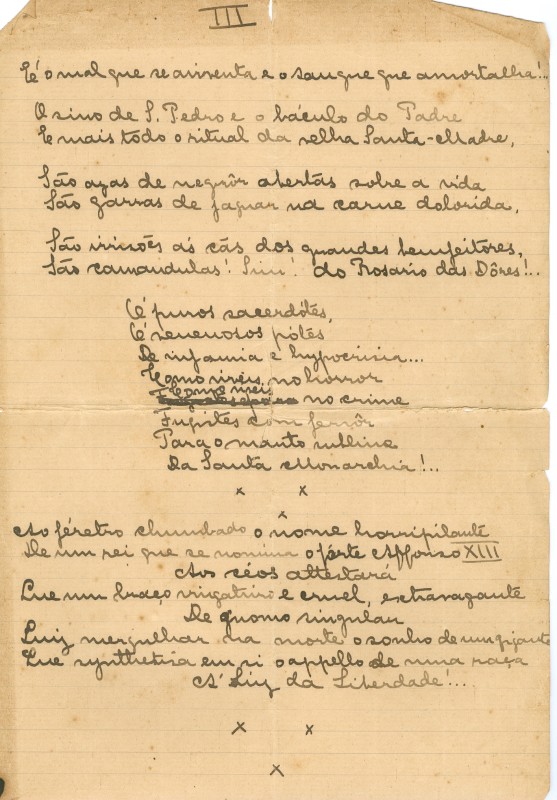 III
E é o mal que se aviventa e o sangue que amortalha!..
O sino de S. Pedro e o báculo do Padre
E mais todo o ritual da velha Santa-Madre,
São azas de negrôr abertas sobre a vida
São garras de jaguar na carne dolorida,
São irrisões ás cãs dos grandes bemfeitores,
São camandulas! Sim! do Rosario das Dôres!..
O' puros sacerdótes,
O' venenosos pótes
De infamia e hypocrisia...
Como viveis no horror
Como no crime
Fugistes com fervôr
Para o manto sublime
Da Santa Monarchia!..
x x
x
Ao féretro chumbado o nome horripilante
De um rei que se nomina o fórte Affonso XIII
Aos céos attestará
Que um braço vingativo e cruel, extravagante
De gnomo singular
Quiz mergulhar na morte o sonho de um gigante
Que synthetisa em si o appello de uma raça
A' Luz da Liberdade!...
x x
x